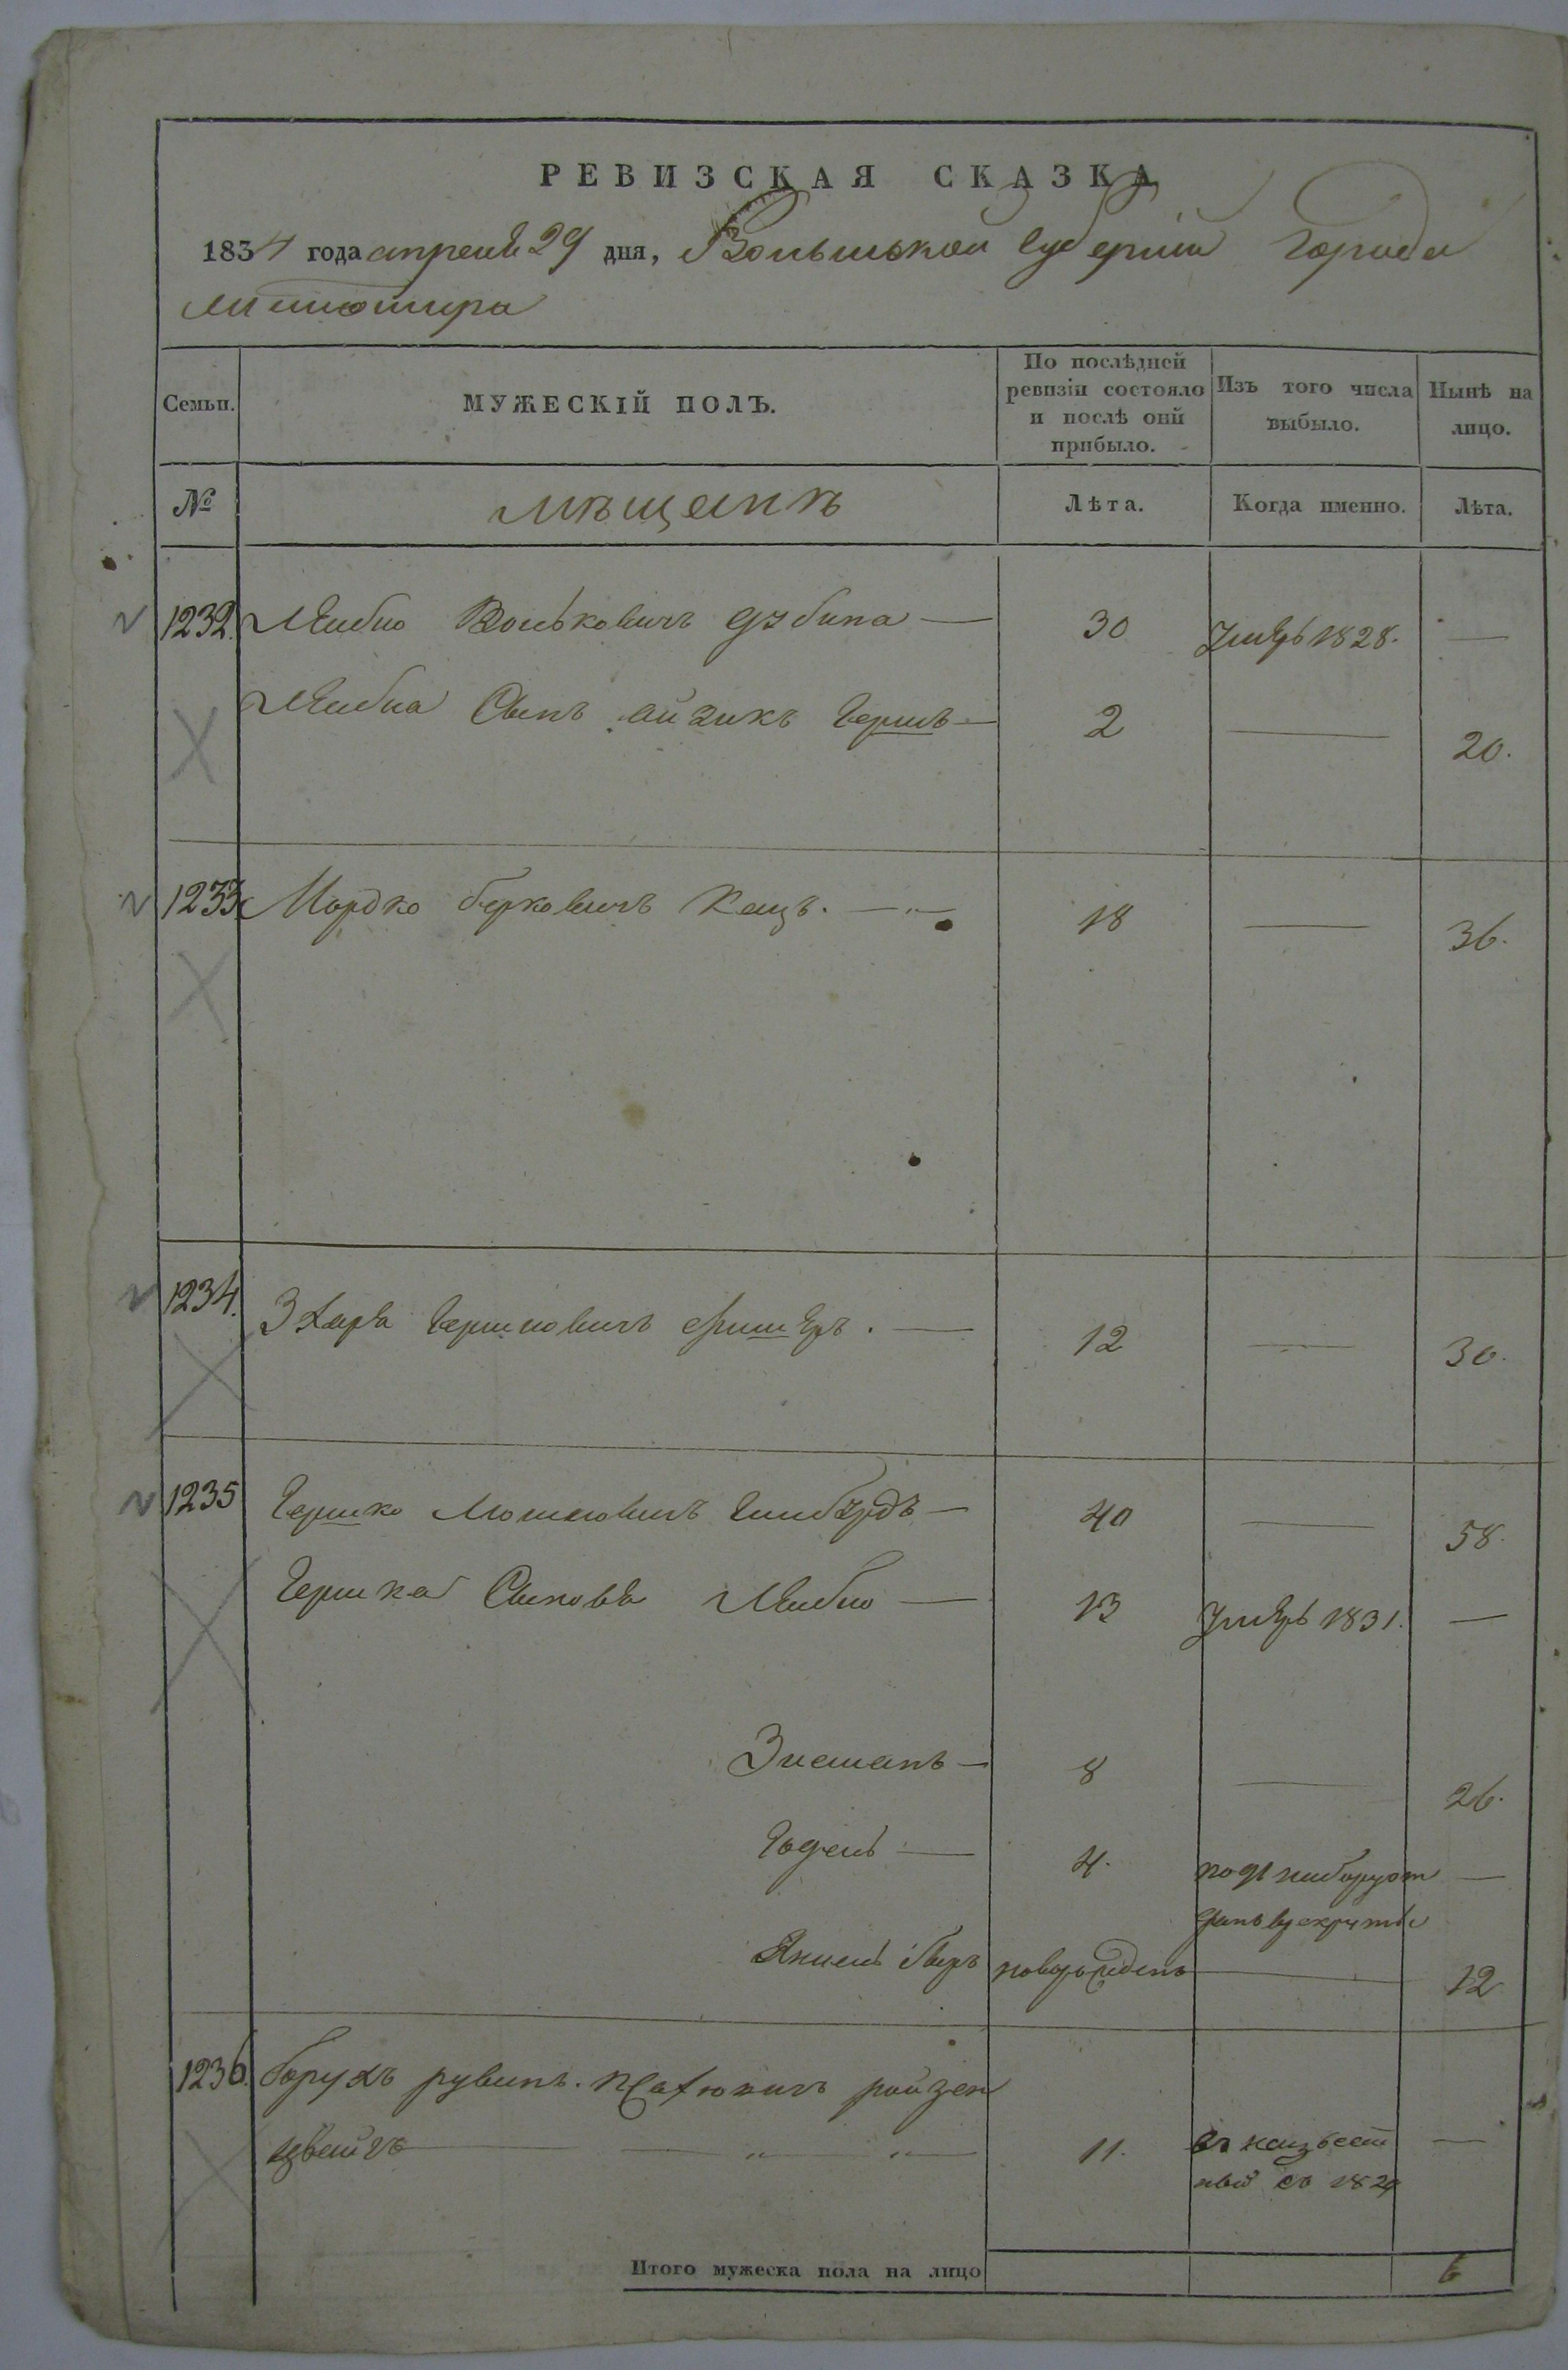 РЕВИЗСКАЯ СКАЗКА
1834 года апреля 29 дня, Волынской губерніи города
Житомира
Семьи.
МУЖЕСКІЙ ПОЛЪ.
По послѣдней ревизіи состояло и послѣ онй прибыло.
Изъ того числа выбыло.
Нынѣ на лицо.
№
мѣщанѣ
Лѣта.
Когда именно.
Лѣта.
1232. Лейбио Вольковичъ — 30 умеръ 1828. —
Лейбиа Сынъ айзикъ гершъ — 2 — 20.
1233 Мордко берковичъ Кацъ. — 18 — 36.
1234. Зхаря Гершковичъ фишеръ. — 12 — 30.
1235 Гершко Мошковичъ — 40 — 58.
Гершка Сыновья Лейбио — 13 умеръ 1831. —
Зисманъ — 8 — 26.
4. —
Янкель беръ новорожденъ — 12
1236. борухъ рувинъ. ройзен
цвейгъ — 11. въ неизвест
ной съ 1829 —
Итого мужеска пола на лицо 6